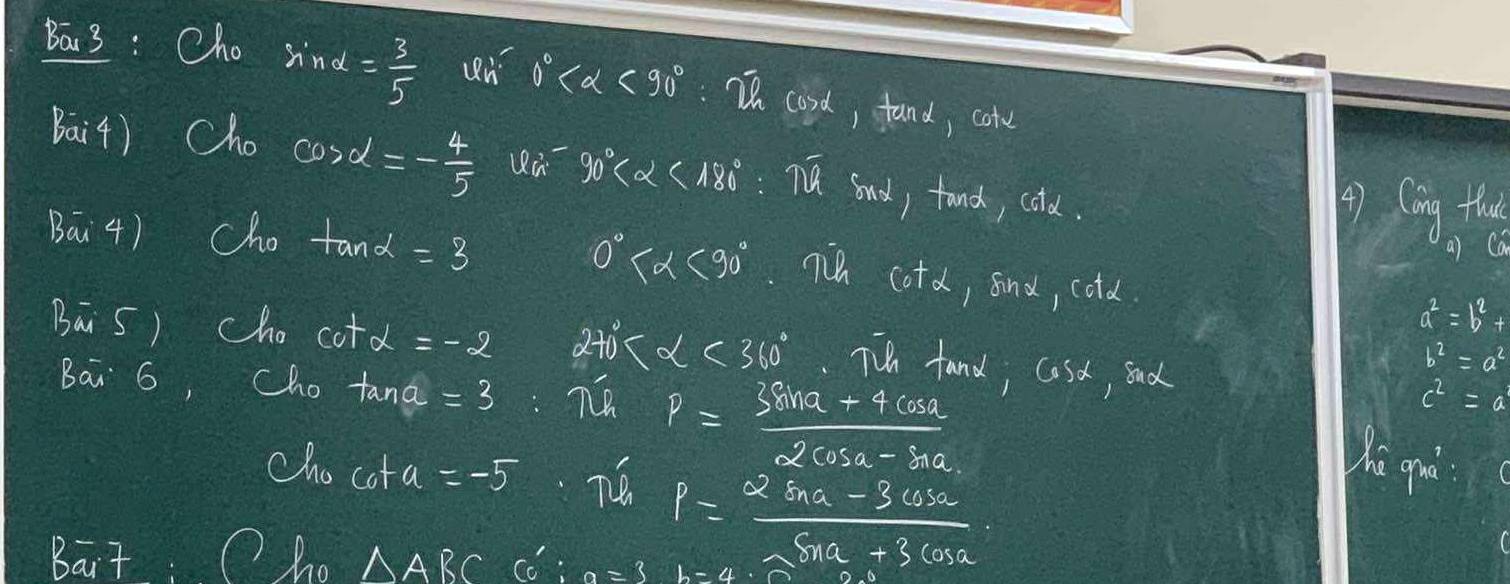 Bài 3 : Cho sinα = 3/5 với 0° < α < 90° : Tính cosα, tanα, cotα
Bài 4) Cho cosα = -4/5 với 90° < α < 180° : Tính sinα, tanα, cotα.
Bài 4) Cho tanα = 3 0° < α < 90°. Tính cotα, sinα, cotα.
Bài 5) Cho cotα = -2 270° < α < 360°. Tính tanα; cosα, sinα
Bài 6, Cho tana = 3 : Tính P = (3sina + 4cosa)/(2cosa - sina).
Cho cota = -5. Tính P = (2sina - 3cosa)/(sina + 3cosa).
Bài 7 : Cho △ABC có : a = 3 b = 4.
4) Công thức
a)
a² = b² +
b² = a²
c² = a²
hệ quả :